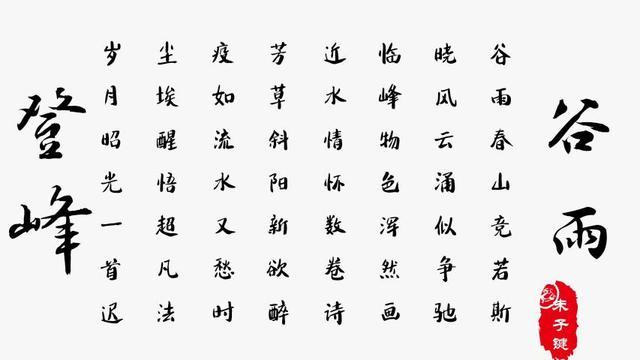 谷雨
谷雨春山竞若斯
晓风云涌似争驰
临峰物色浑然画
近水情怀数卷诗
芳草斜阳新欲醉
疫如流水又愁时
尘埃醒悟超凡法
岁月昭光一首迟
登峰
朱子键